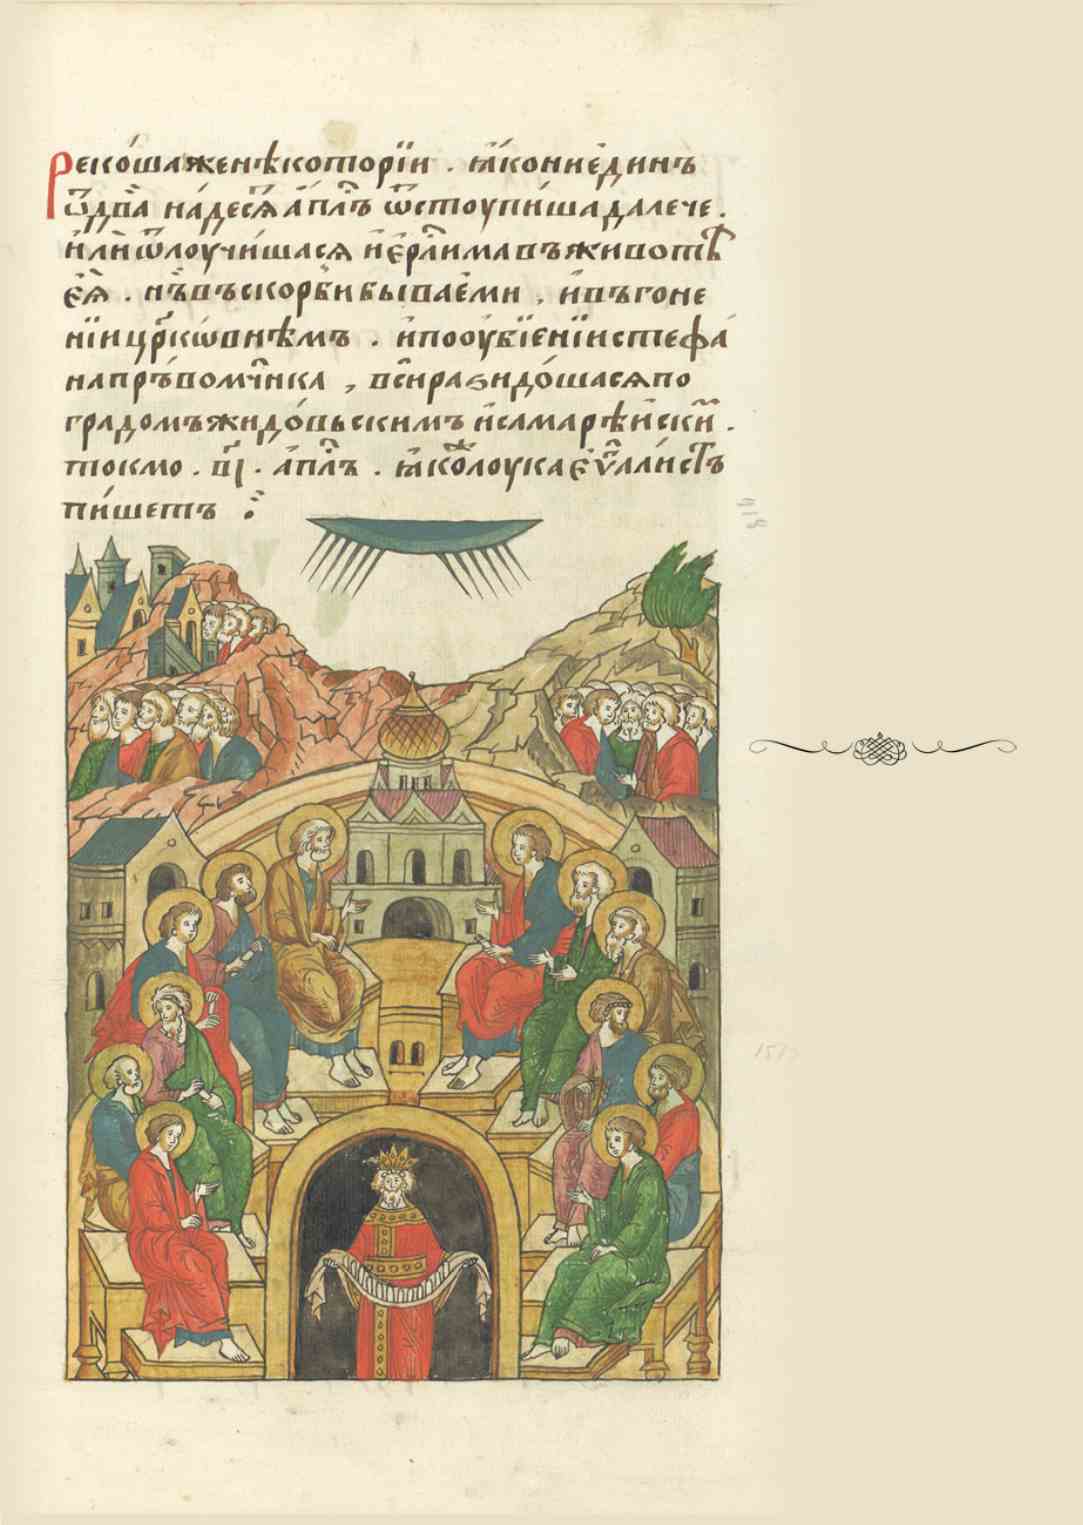 Рекоша же нѣкоторїи . ꙗко ниединъ
ѿ двꙋнадесѧ а҆пл҃ъ ѿстоупи́ша далече .
и҆ли ѿлоучи́шасѧ и҆ер҇лима въ животѣ
еѧ҆ . нъ въ скорби бываеми , и҆ въ гоне
нїи цр҃ковнѣмъ . и҆ по оубїенїи стефа́
на пръвомч҃нка , вси разидо́шасѧ по
градомъ жидо́вьскимъ и҆ самарѣйски .
токмо . в҃і . а҆пл҃ъ . ꙗко лоука еѵ҃алистъ
пи́шетъ